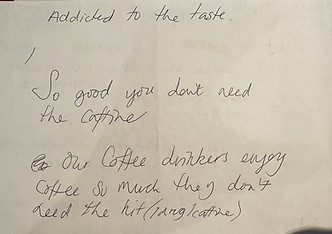 Addicted to the taste.
So good you dont need
the caffine
Our Coffee drinkers enjoy
coffee so much they don't
need the hit (drug/caffine)